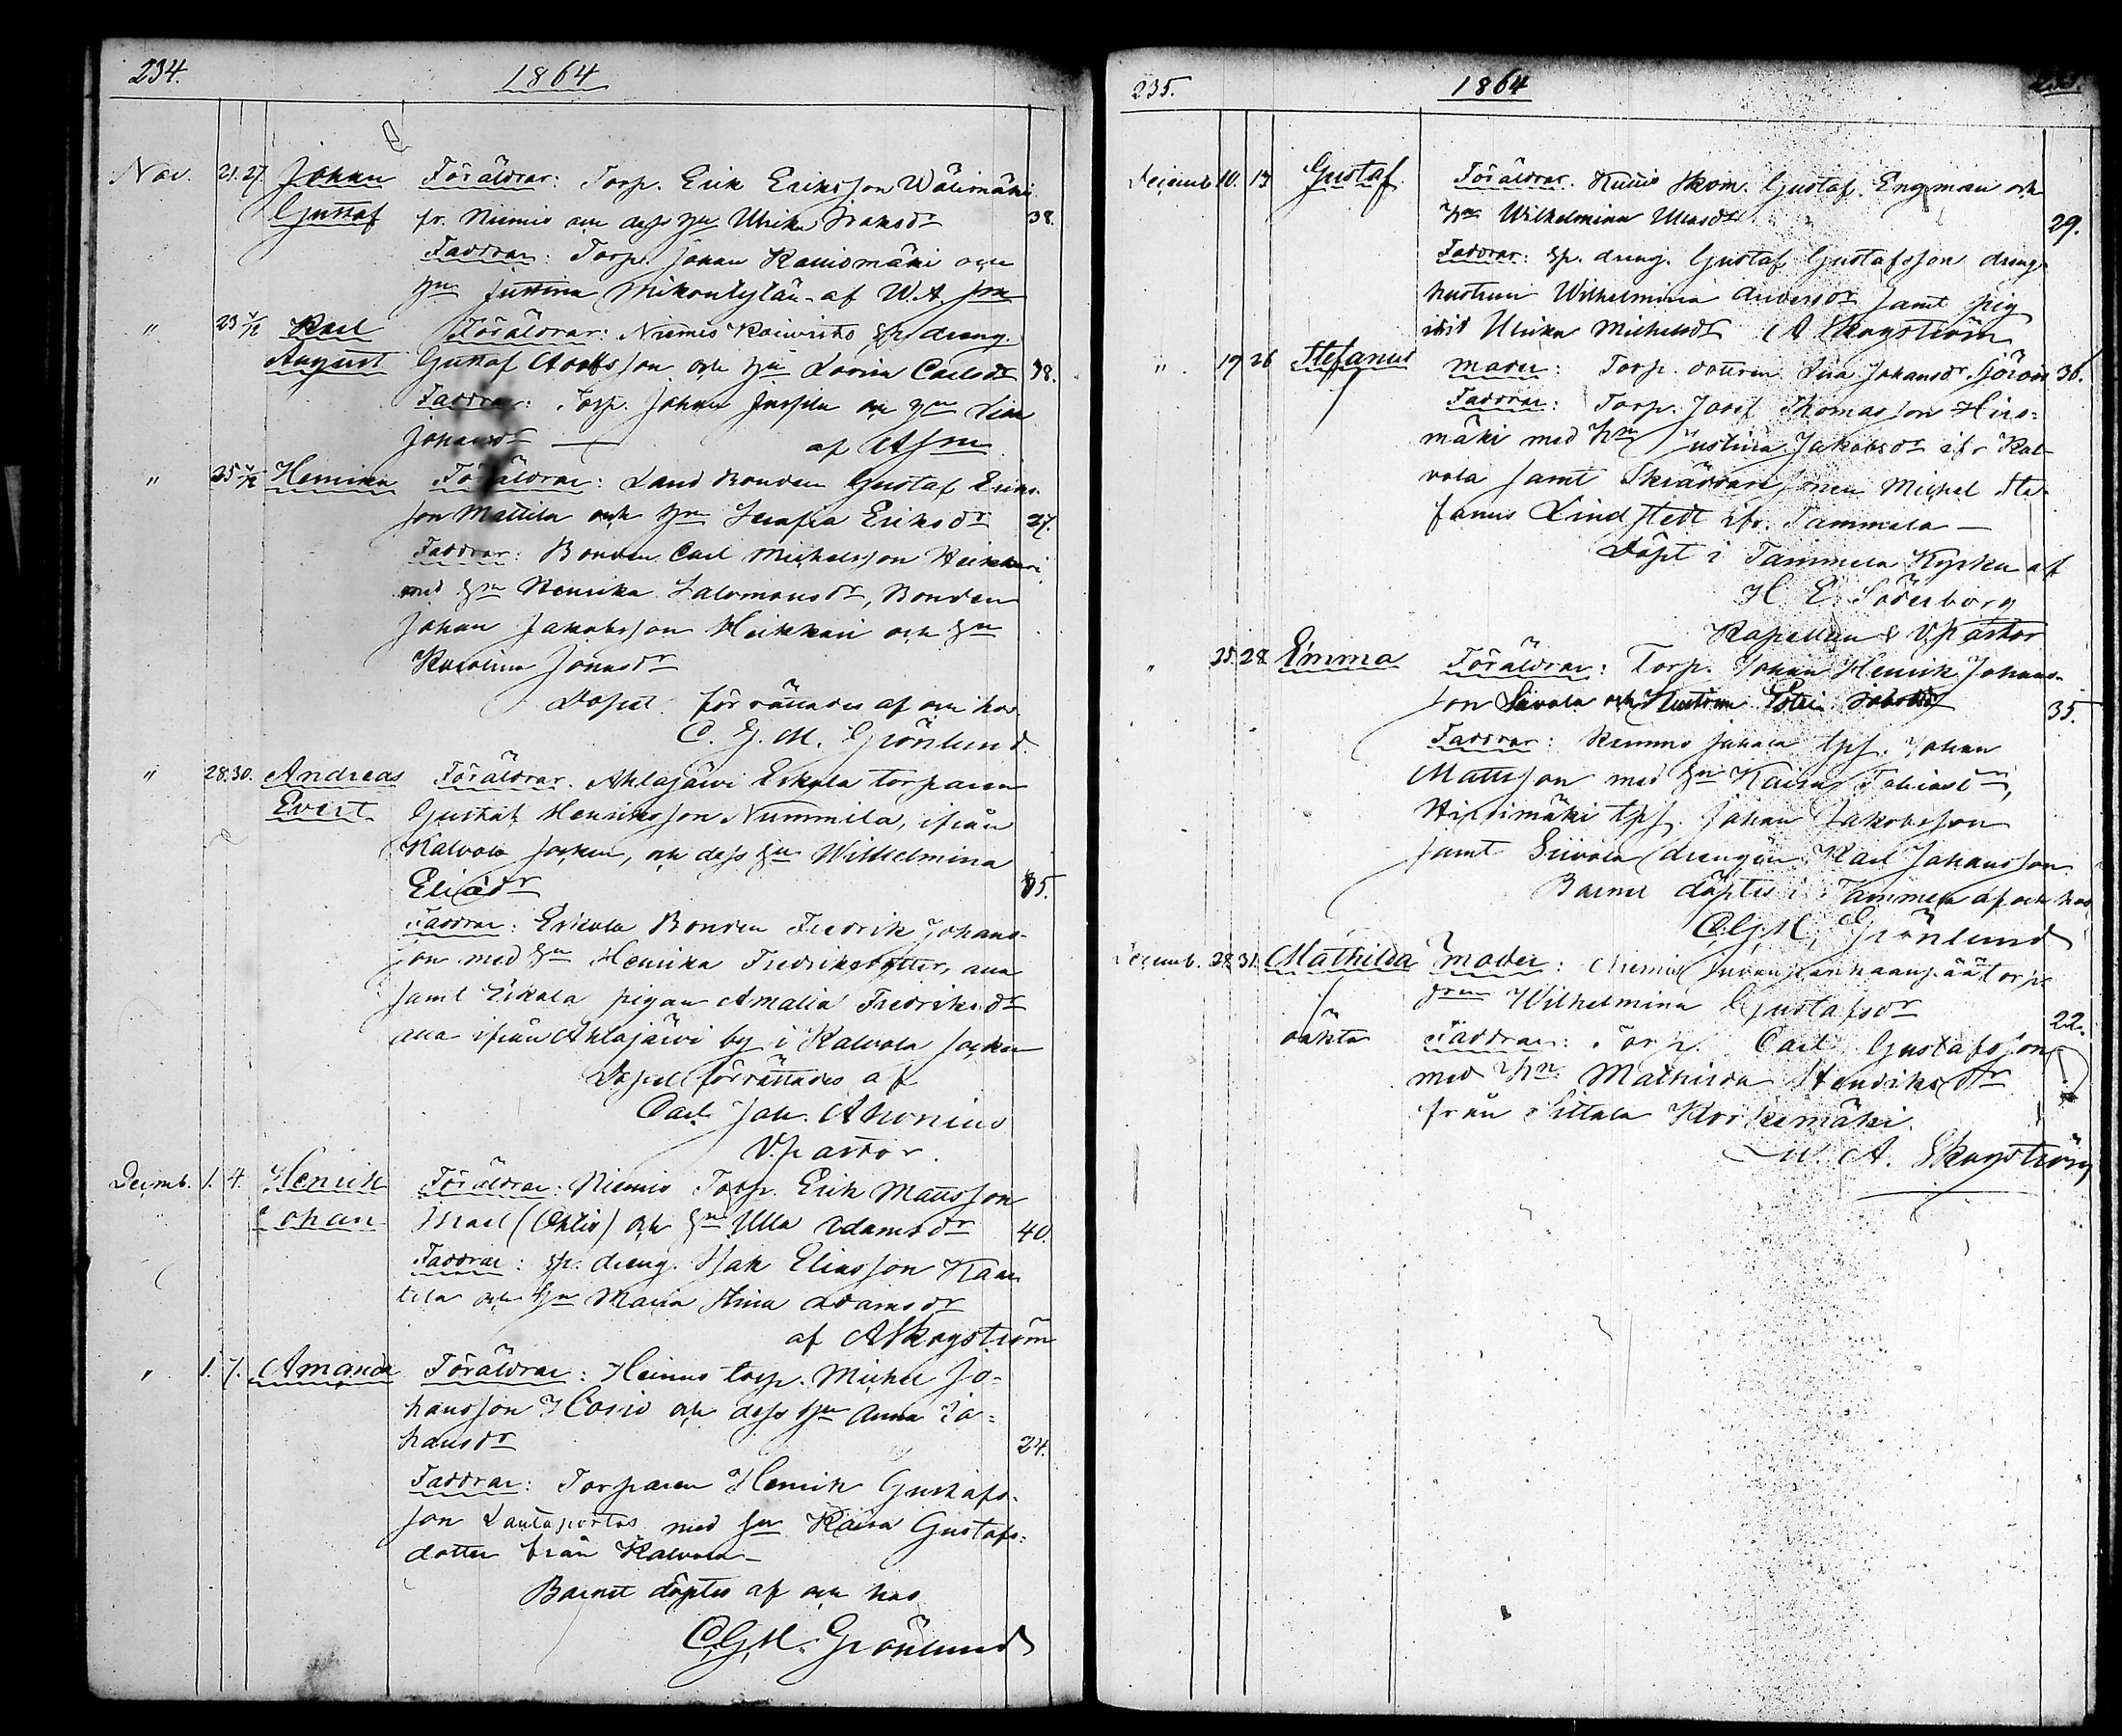 234.
1864
Nov. 21. 27. Johan Föräldrar: Torp. Erik Eriksson
Gustaf fr. Niemis och dess hu Ulrika 38.
Faddrar: Torp. Johan Rauismäki och
hu Justina af W. A. Sm
" 23 4/12 Karl Föräldrar: Niemis dreng.
August Gustaf son och hu Lovisa Carlsdr 38.
Faddrar: Torp. Johan och hu Lisa
Johansdr — af ASm
" 25 4/12 Henrika Föräldrar: Land Bonden Gustaf Eriks-
son Mattila och hu Serafia Eriksdr 27.
Faddrar: Bonden Carl Michelsson Heikkari
med hu Henrika Salomonsdr, Bonden
Johan Jakobsson Heikkari och hu
Karolina Jonasdr
Dopet förrättades af och hos
C. G. M. Grönlund
" 28. 30. Andreas Föräldrar. Ahlajärvi Eskola torparen
Evert Gustaf Henriksson Nummila, ifrån
Kalvola socken, och dess hu Wilhelmina
Eliædr 35.
Faddrar: Eskola Bonden Fredrik Johans-
son med hu Henrika Fredriksdotter,
samt Eskola pigan Amalia Fredriksdr
alla ifrån Ahlajärvi by i Kalvola socken
Dopet förrättades af
Carl Joh. Ahonius
V. pastor.
Decemb. 1. 4. Henrik Föräldrar: Niemis Torp. Erik Mattsson
Johan Israel (Ohlis) och hu Ulla Adamsdr 40.
Faddrar: sp. dreng. Isak Eliasson
tila och hu Maria Stina Adamsdr
af ASkogström
" 1. 7. Amanda Föräldrar: Heinus torp. Michel Jo-
hansson Hosio och dess hu Anna Jo-
hansdr 24.
Faddrar: Torparen Henrik Gustafs-
son Lautaportas med hu Kaisa Gustafs-
dotter från Kalvola —
Barnet döptes af och hos
C. G. M. Grönlund
235.
1864
Decemb. 10. 13 Gustaf Föräldrar. Skom. Gustaf Engman och
hu Wilhelmina 29.
Faddrar: sp. dreng. Gustaf Gustafsson dreng-
hustrun Wilhelmina Andersdr samt pig
ibid Ulrika Michelsdr A Skogström
" 19 26 Stefanus Moder: Torp. dottren Lisa Johansdr 36.
Faddrar: Torp. Josef Thomasson Hirs-
mäki med hu Justina Jakobsdr ifr Kal-
vola samt Skräddare sonen Michel Ste-
fanus Lindstedt ifr. Tammela —
Döpt i Tammela Kyrka af
H. E. Söderborg
Kapellan & V. Pastor
" 25. 28 Emma Föräldrar: Torp. Johan Henrik Johans-
son Siivola och Hustrun 35.
Faddrar: Johan
Mattsson med hu Kaisa Tobiasdr,
Hirsimäki Johan Jakobsson
samt Siivola drengen Karl Johansson
Barnet döptes i Tammela af och hos
C. G. M. Grönlund
Decemb. 28. 31. Mathilda Moder: Niemis
Wilhelmina Gustafsdr 22.
oäkta Faddrar: Torp. Carl Gustafsson
med hu Mathilda Henriksdr
från Sittala Korkemäki.
W. A. Skogström